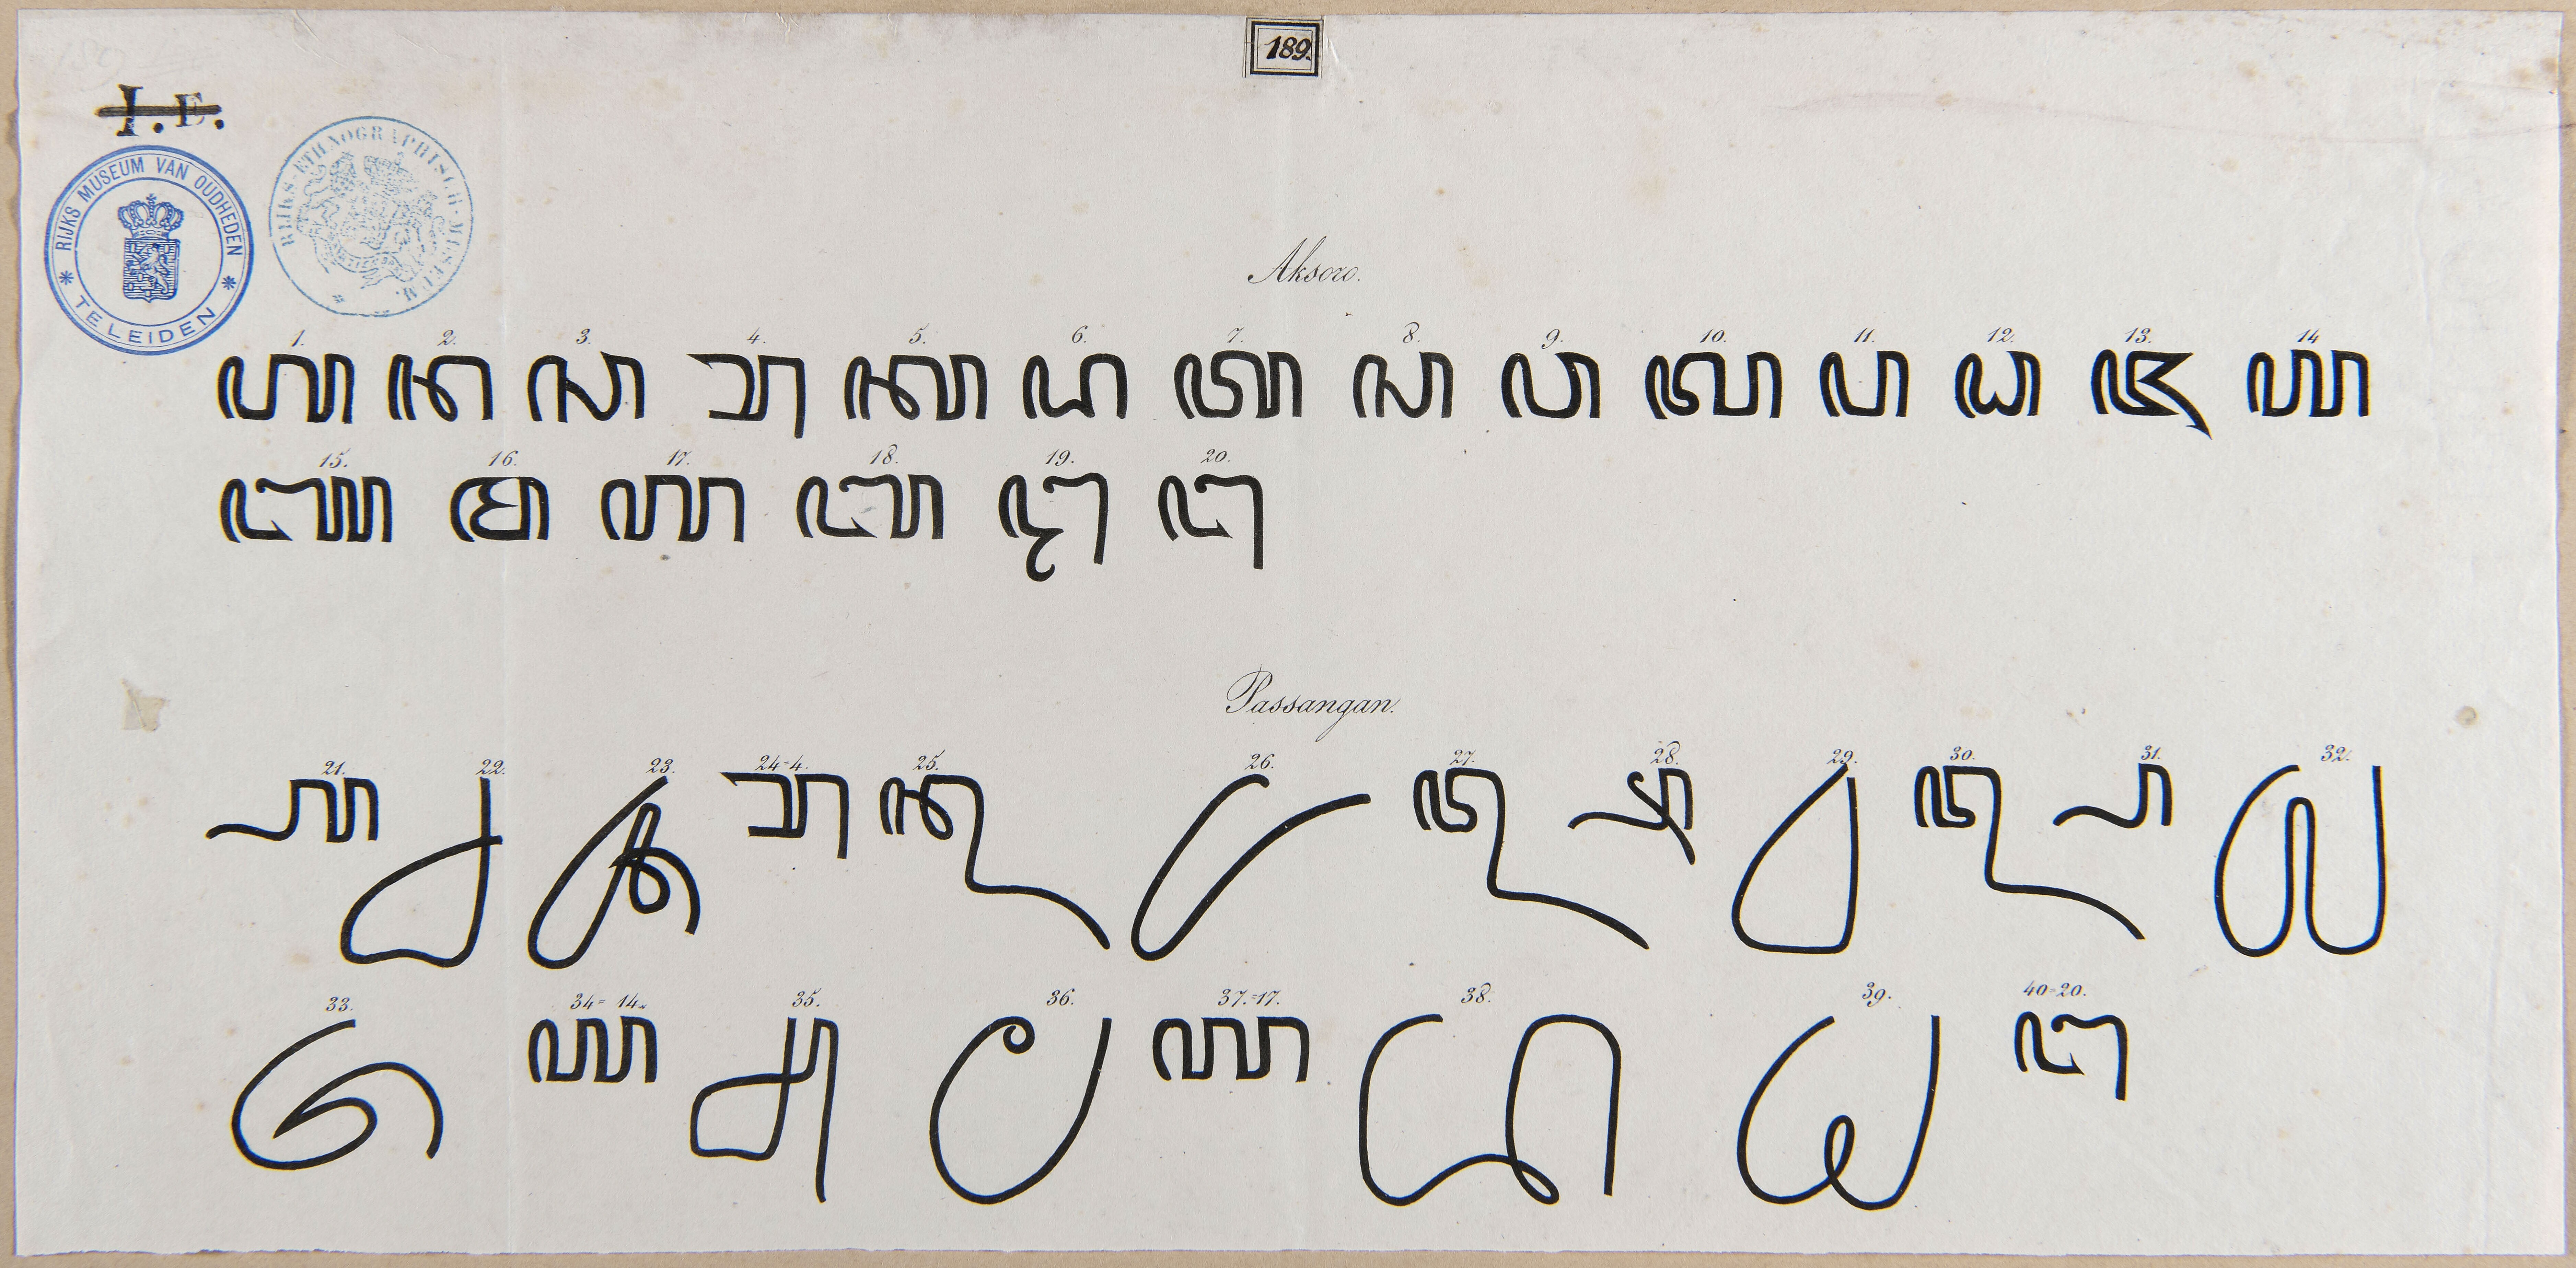 189.
I.E.
RIJKS MUSEUM VAN OUDHEDEN
* TE LEIDEN *
RIJKS-ETHNOGRAPHISCH-MUSEUM.
Aksoro.
1. 2. 3. 4. 5. 6. 7. 8. 9. 10. 11. 12. 13. 14
ꦲ ꦤ ꦕ ꦫ ꦏ ꦢ ꦠ ꦱ ꦮ ꦭ ꦥ ꦝ ꦗ ꦪ
15. 16. 17. 18. 19. 20.
ꦚ ꦩ ꦒ ꦧ ꦛ ꦔ
Passangan.
21. 22. 23. 24=4. 25. 26. 27. 28. 29. 30. 31. 32.
꧀ꦲ ꧀ꦤ ꧀ꦕ ꦫ ꧀ꦏ ꧀ꦢ ꧀ꦠ ꧀ꦱ ꧀ꦮ ꧀ꦭ ꧀ꦥ ꧀ꦝ
33. 34=14. 35. 36. 37.=17. 38. 39. 40=20.
꧀ꦗ ꦪ ꧀ꦚ ꧀ꦩ ꦒ ꧀ꦧ ꧀ꦛ ꦔ